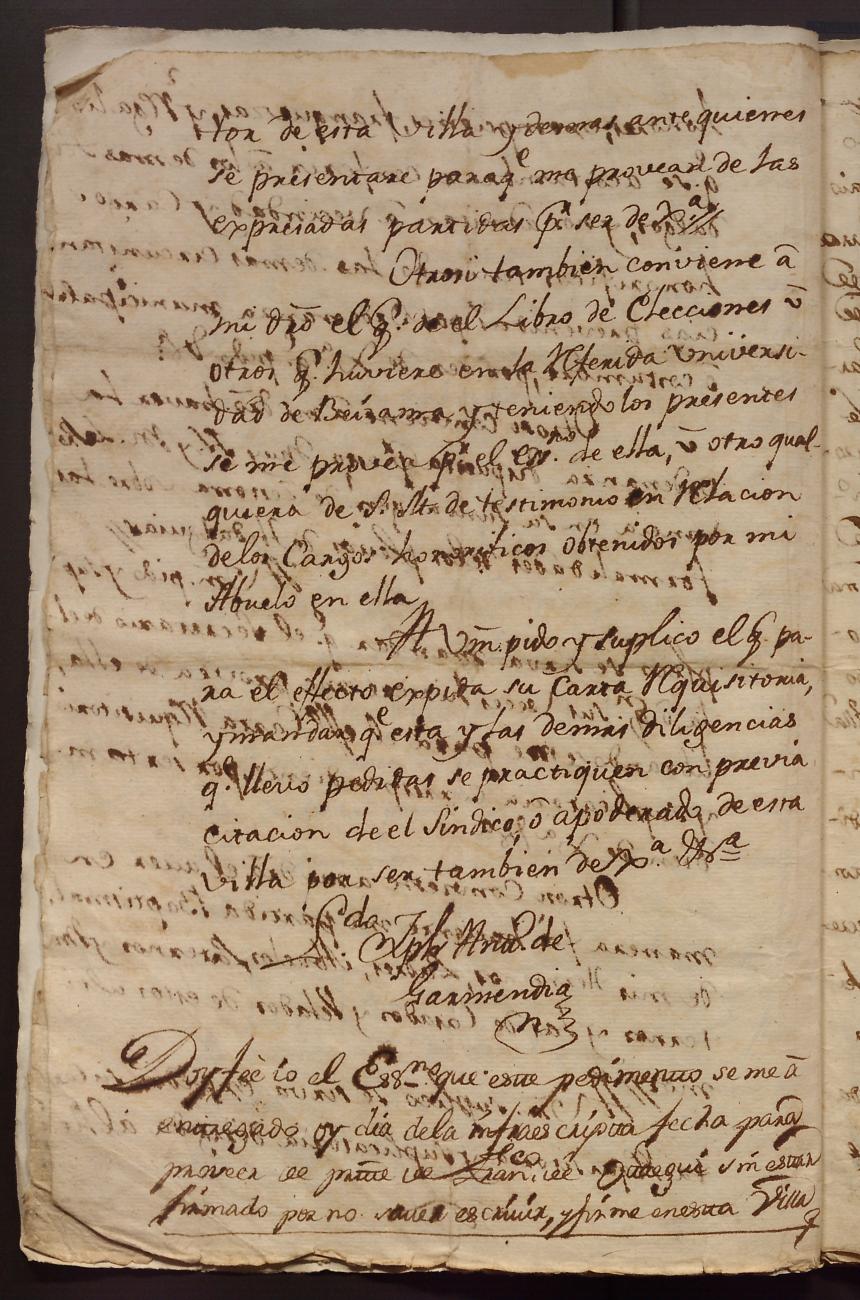 tor de esta villa y demas ante quienes
se presentare paraq.e me provean de las
expresadas partidas p.r ser de Jx.a
Otrosi tambien conviene â
mi dr̃o el q.e de el Libro de Elecciones û
otros q.e huviere en la Rferida Universi-
dad de Beizama y teniendolos presentes
se me provea p.r el ess.no de ella, û otro qual-
quiera de S. M. de testimonio en Relacion
delos Cargos honorificos obtenidos por mi
Abuelo en ella
A Vm̃. pido y suplico el q.e pa-
ra el effecto expida su Carta Rquisitoria,
y mandar q.e esta y las demas diligencias
q.e llevo pedidas se practiquen con previa
citacion de el Sindico, ô apoderado de esta
villa por ser tambien de Jx.a &.a
Garmendia
Doy feè io el Ess.no que este pedimento se me â
entregado oy dia dela infraescripta fecha para
proveer de parte de Fran.co de sin estar
firmado por no saver escrivir, y firme en esta Villa